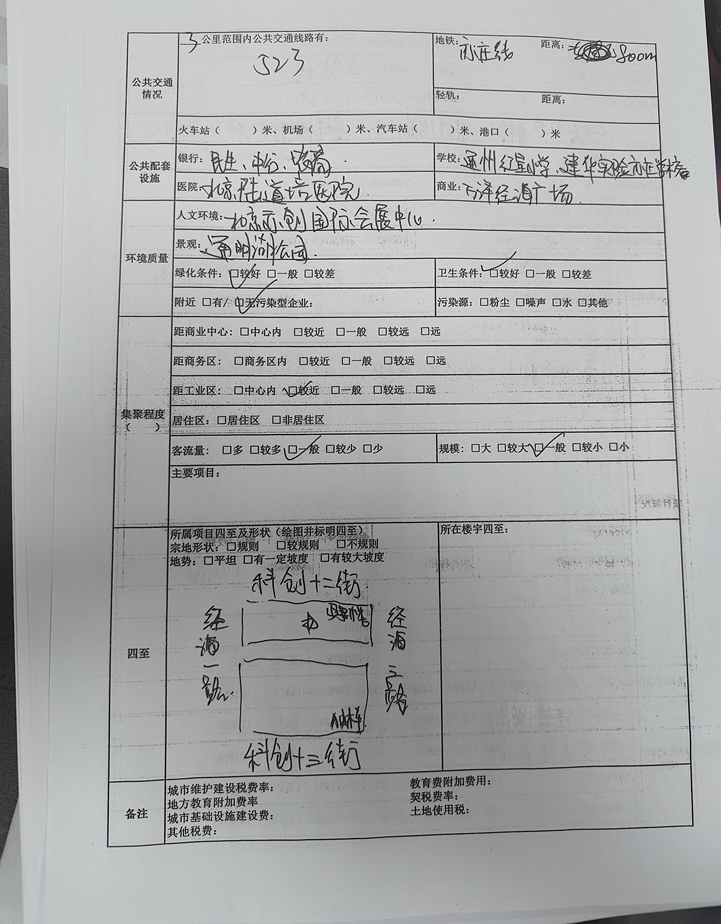 3公里范围内公共交通线路有:
523
地铁:亦庄线 距离: 800m
公共交通情况
轻轨: 距离:
火车站（ ）米、机场（ ）米、汽车站（ ）米、港口（ ）米
公共配套设施
银行:民生、中行、
学校:通州红星小学、建华实验亦庄学校
医院:北京陆道培医院
商业:万洋经海广场
环境质量
人文环境:北京亦创国际会展中心.
景观:通明湖公园.
绿化条件:☑较好 □一般 □较差
卫生条件:☑较好 □一般 □较差
附近 □有/☑无污染型企业:
污染源:□粉尘 □噪声 □水 □其他
集聚程度（ ）
距商业中心:□中心内 □较近 □一般 □较远 □远
距商务区:□商务区内 □较近 □一般 □较远 □远
距工业区:□中心内 ☑较近 □一般 □较远 □远
居住区:□居住区 □非居住区
客流量:□多 □较多 ☑一般 □较少 □少
规模:□大 □较大 ☑一般 □较小 □小
主要项目:
四至
所属项目四至及形状（绘图并标明四至）
宗地形状:□规则 □较规则 □不规则
地势:□平坦 □有一定坡度 □有较大坡度
所在楼宇四至:
科创十二街
经海一路
经海三路
科创十三街
备注
城市维护建设税费率:
教育费附加费用:
地方教育附加费率
契税费率:
城市基础设施建设费:
土地使用税:
其他税费: